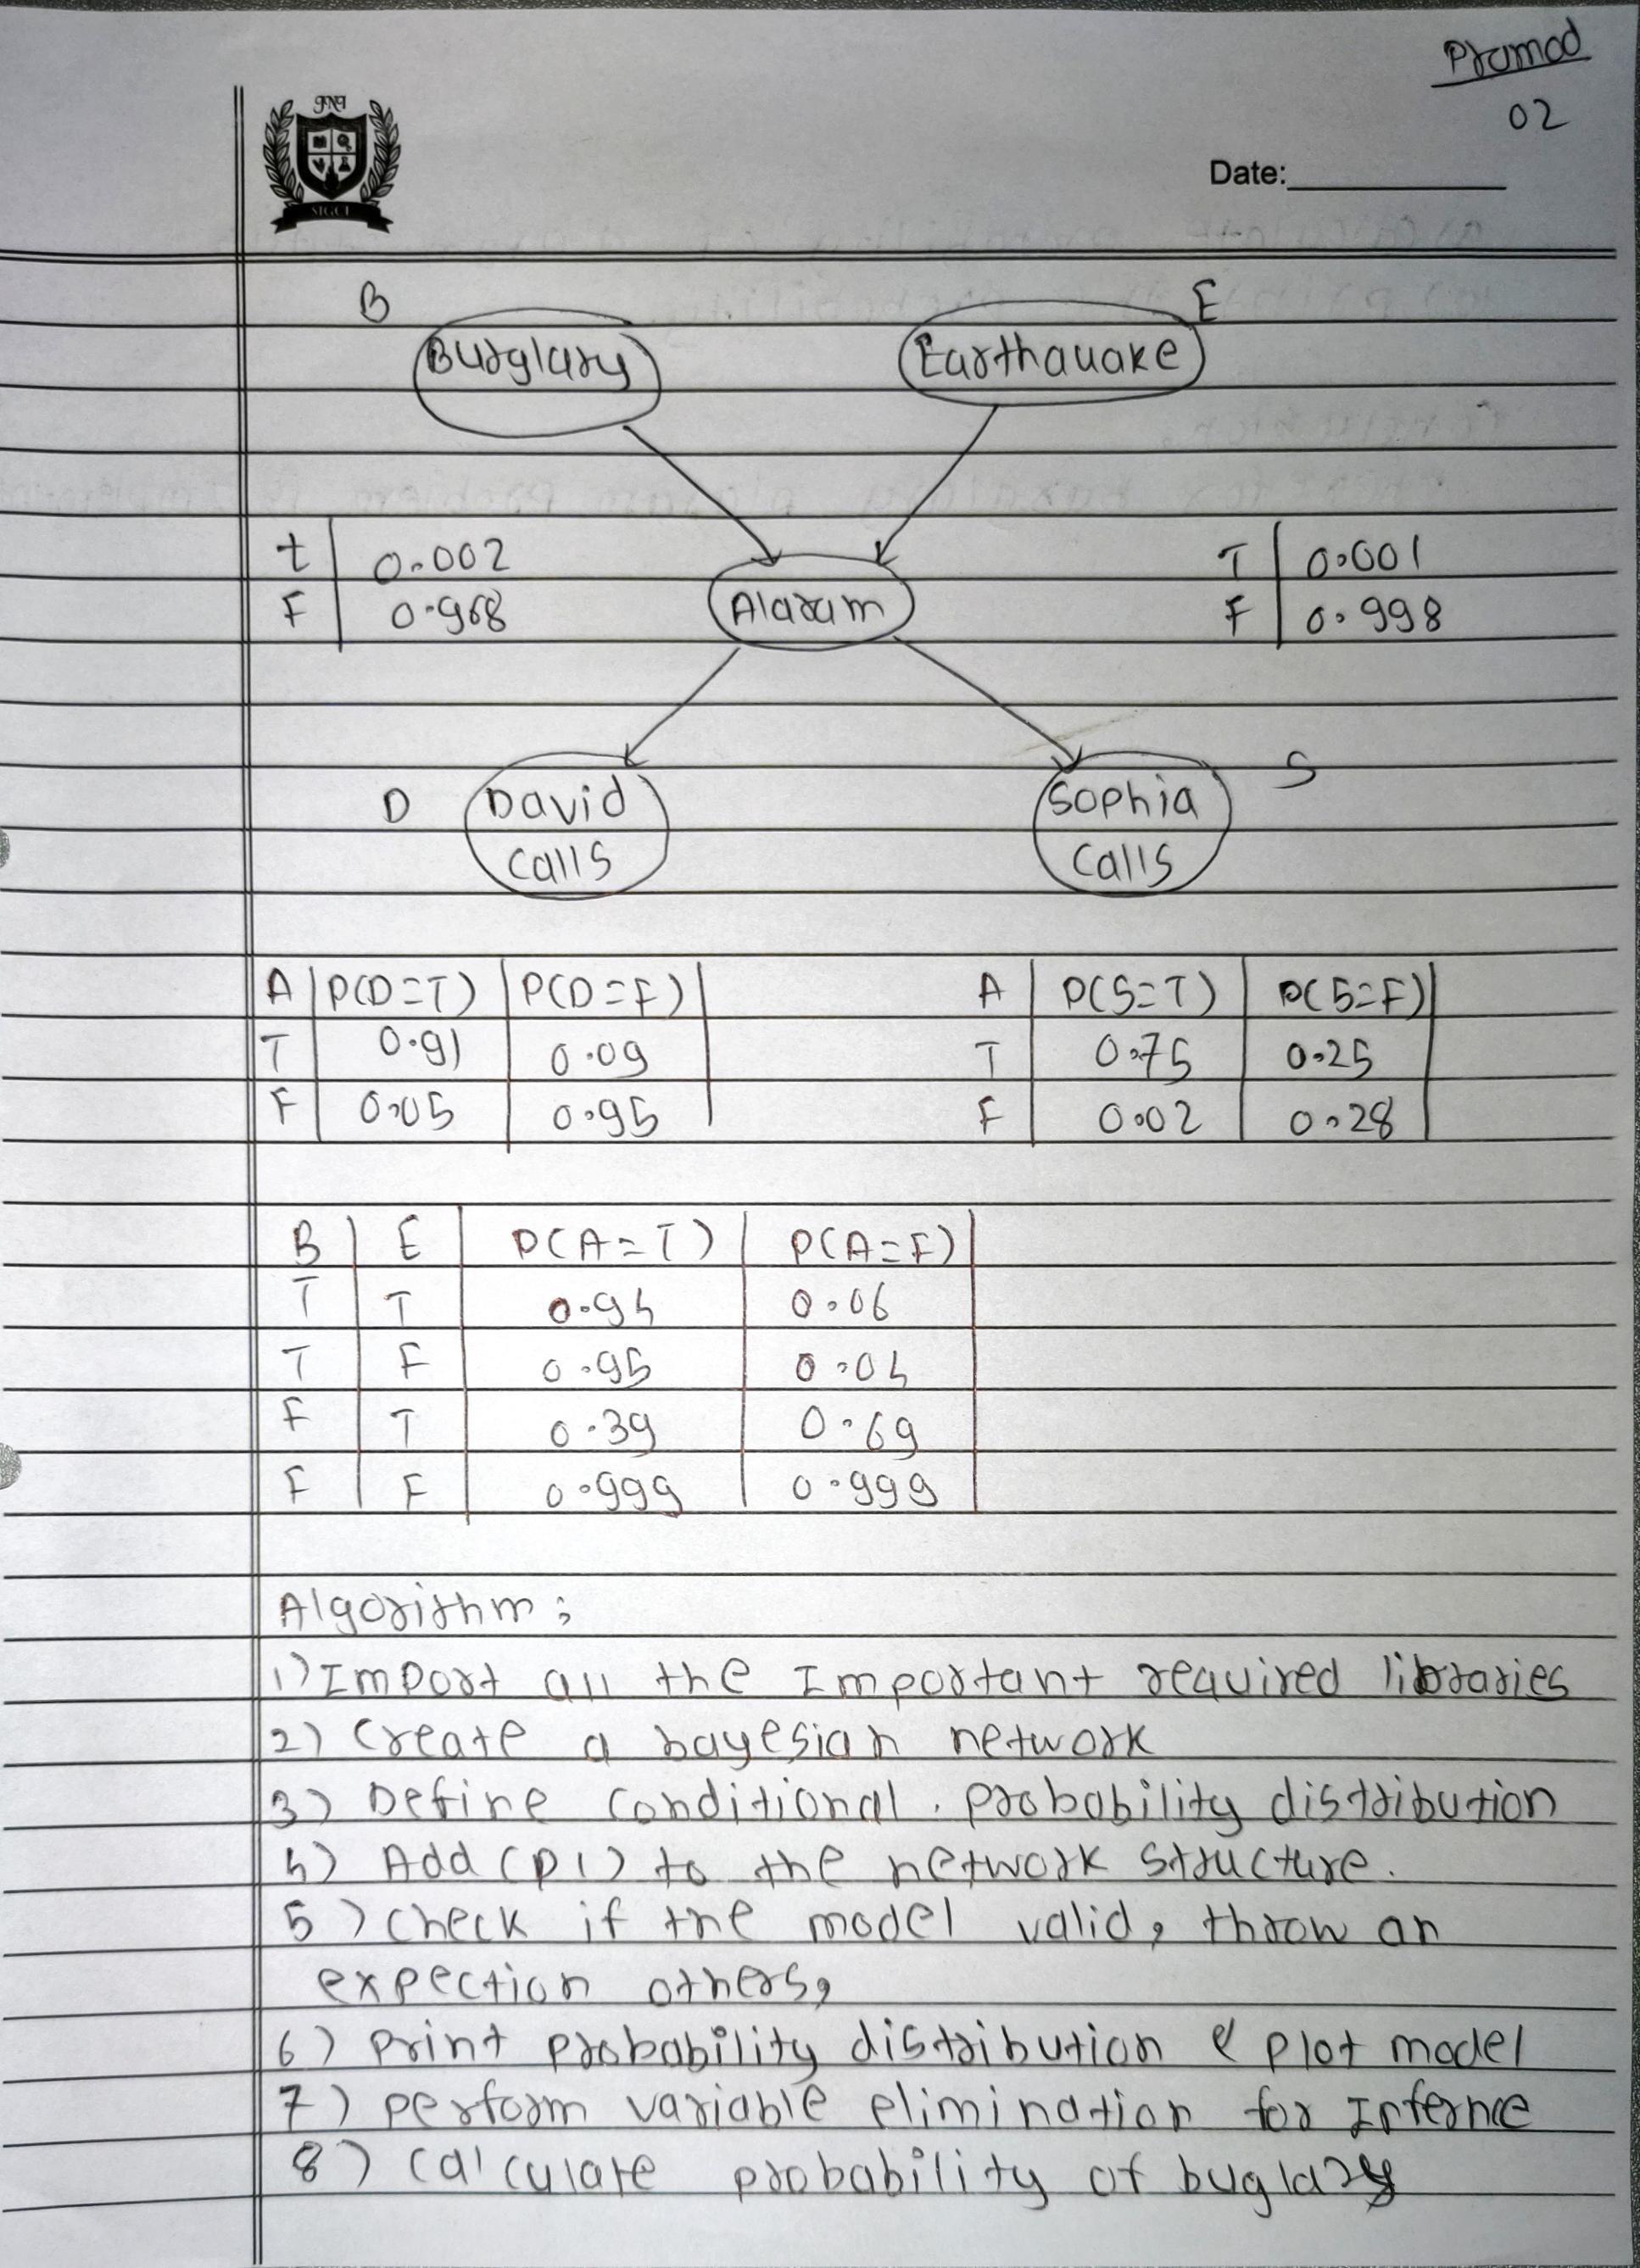 Pramod
02
गुरुकुल
SIGCE
Date:
B E
Burglary Earthauake
t 0.002 T 0.001
F 0.968 F 0.998
Alaram
D David Sophia S
calls calls
A P(D=T) P(D=F) A P(S=T) P(S=F)
T 0.91 0.09 T 0.75 0.25
F 0.05 0.95 F 0.02 0.28
B E P(A=T) P(A=F)
T T 0.94 0.06
T F 0.95 0.04
F T 0.39 0.69
F F 0.999 0.999
Algorithm:
1) Import all the Important reauired libraries
2) Create a bayesian network
3) Define conditional probability distribution
4) Add CPD1) to the network structure.
5) check if the model valid, throw an
expection others,
6) print probability distribution & plot model
7) perform variable elimination for Infernce
8) calculate probability of buglary